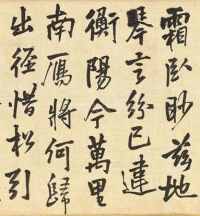 霜臥眇兹地
琴言紛已違
衡陽今萬里
南鴈將何歸
出徑惜松引